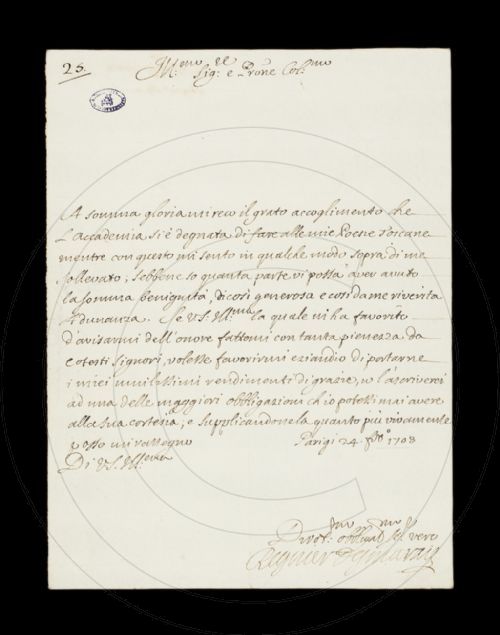 25.
Ill.mo Sig.e e Prone Col.mo
A somma gloria mi reco il grato accoglimento che
L'Accademia si è degnata di fare alle mie Poesie Toscane
mentre con questo mi sento in qualche modo sopra di me
sollevato; sebbene so quanta parte vi possa aver avuto
la somma benignità, di così generosa e così da me riverita
Adunanza. Se V.S. Ill.ma la quale mi ha favorito
d'avisarmi dell'onore fattomi con tanta pienezza da
cotesti Signori, volesse favorirmi eziandio di portarne
i miei umilissimi rendimenti di grazie, io l'ascriverei
ad una delle maggiori obbligazioni ch'io potessi mai avere
alla sua cortesia, e supplicandonela quanto più vivamente
posso mi rassegno
Parigi 24 1708
Di V.S. Ill.ma
Divot.mo vero
Regnier Desmarais